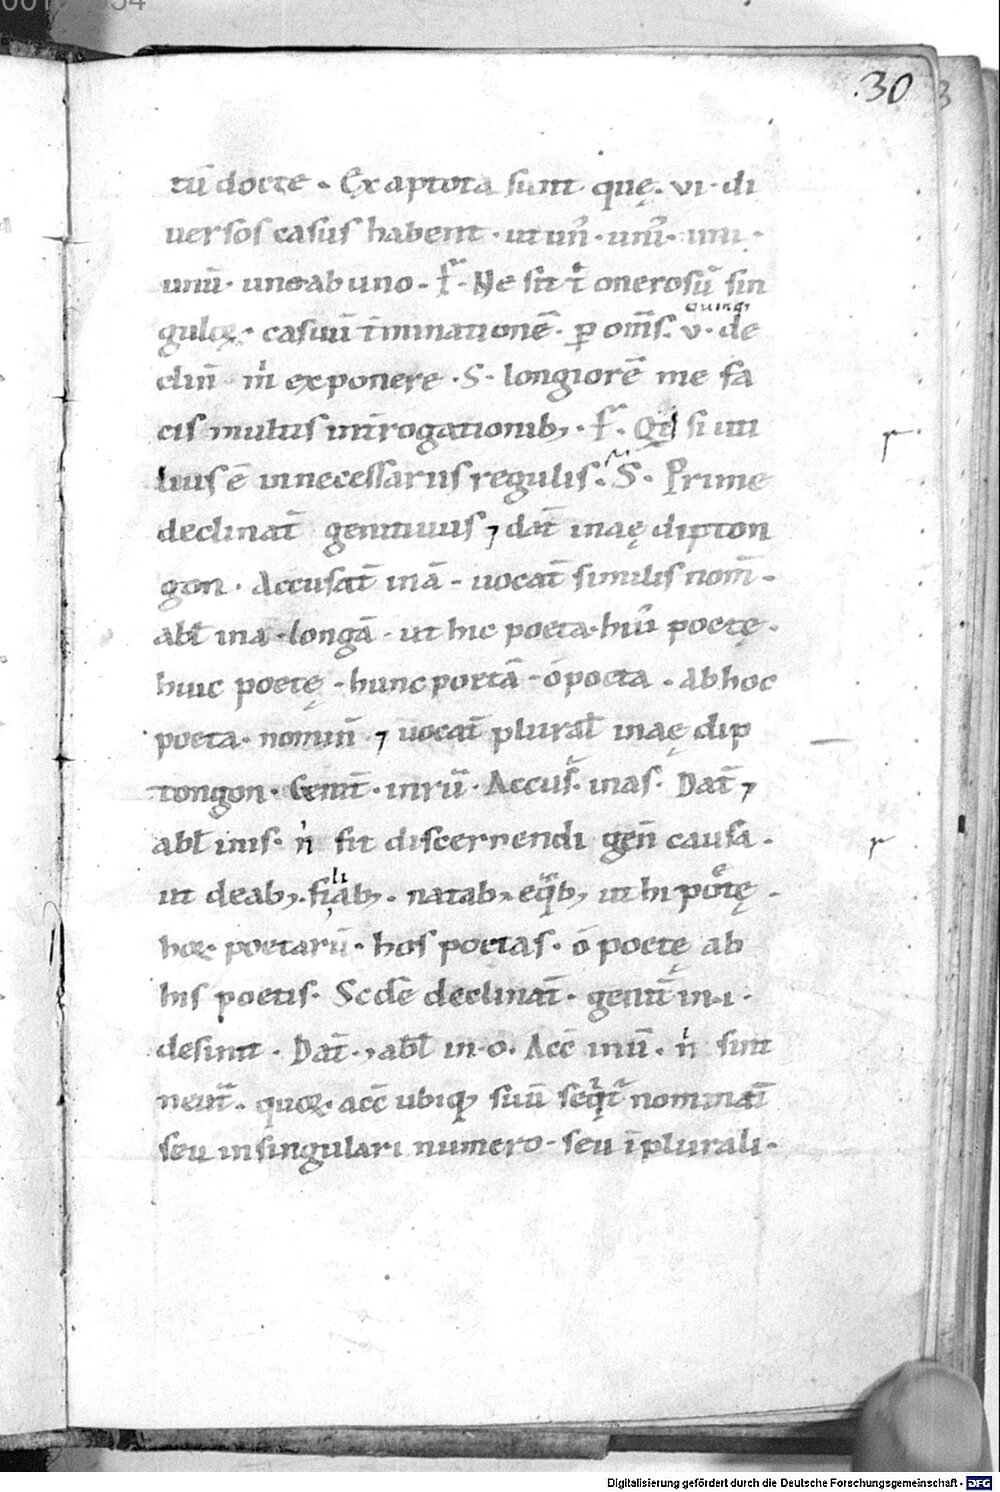 30
tū docte . Exaptota sunt quę . vi . di
uersos casus habent . ut un . uni . uni .
unū . une ab uno . f . Ne sit t onerosū sin
gulor casuū tminationē . p oms . v . de
quinq
clin m exponere . S . longiorē me fa
cis multus introgationib; . f . Qd si uti
lius ē in necessariis regulis . S . Prime
declinat genitiuus ⁊ dat in aę dipton
gon . Accusat in ā . uocat similis nom .
abl in a . longā . ut hic poeta . hui poetę .
huic poetę . hunc poetā . o poeta . Ab hoc
poeta . nomin ⁊ uocat plural in aę dip
tongon . Genit . in rū . Accus . in as . Dat ⁊
abl in is . n sit discernendi gen causa .
ut deab; . filiab; . natab; eqb; ut hi poetę .
hor poetarū . hos poetas . o poetę ab
his poetis . Scde declinat . genit in . i .
desinit . Dat . ⁊ abl in . o . Acc in ū . n sint
neut . quor acc ubiq; suū seqt nominat
seu in singulari numero . seu ī plurali .
Digitalisierung gefördert durch die Deutsche Forschungsgemeinschaft - DFG